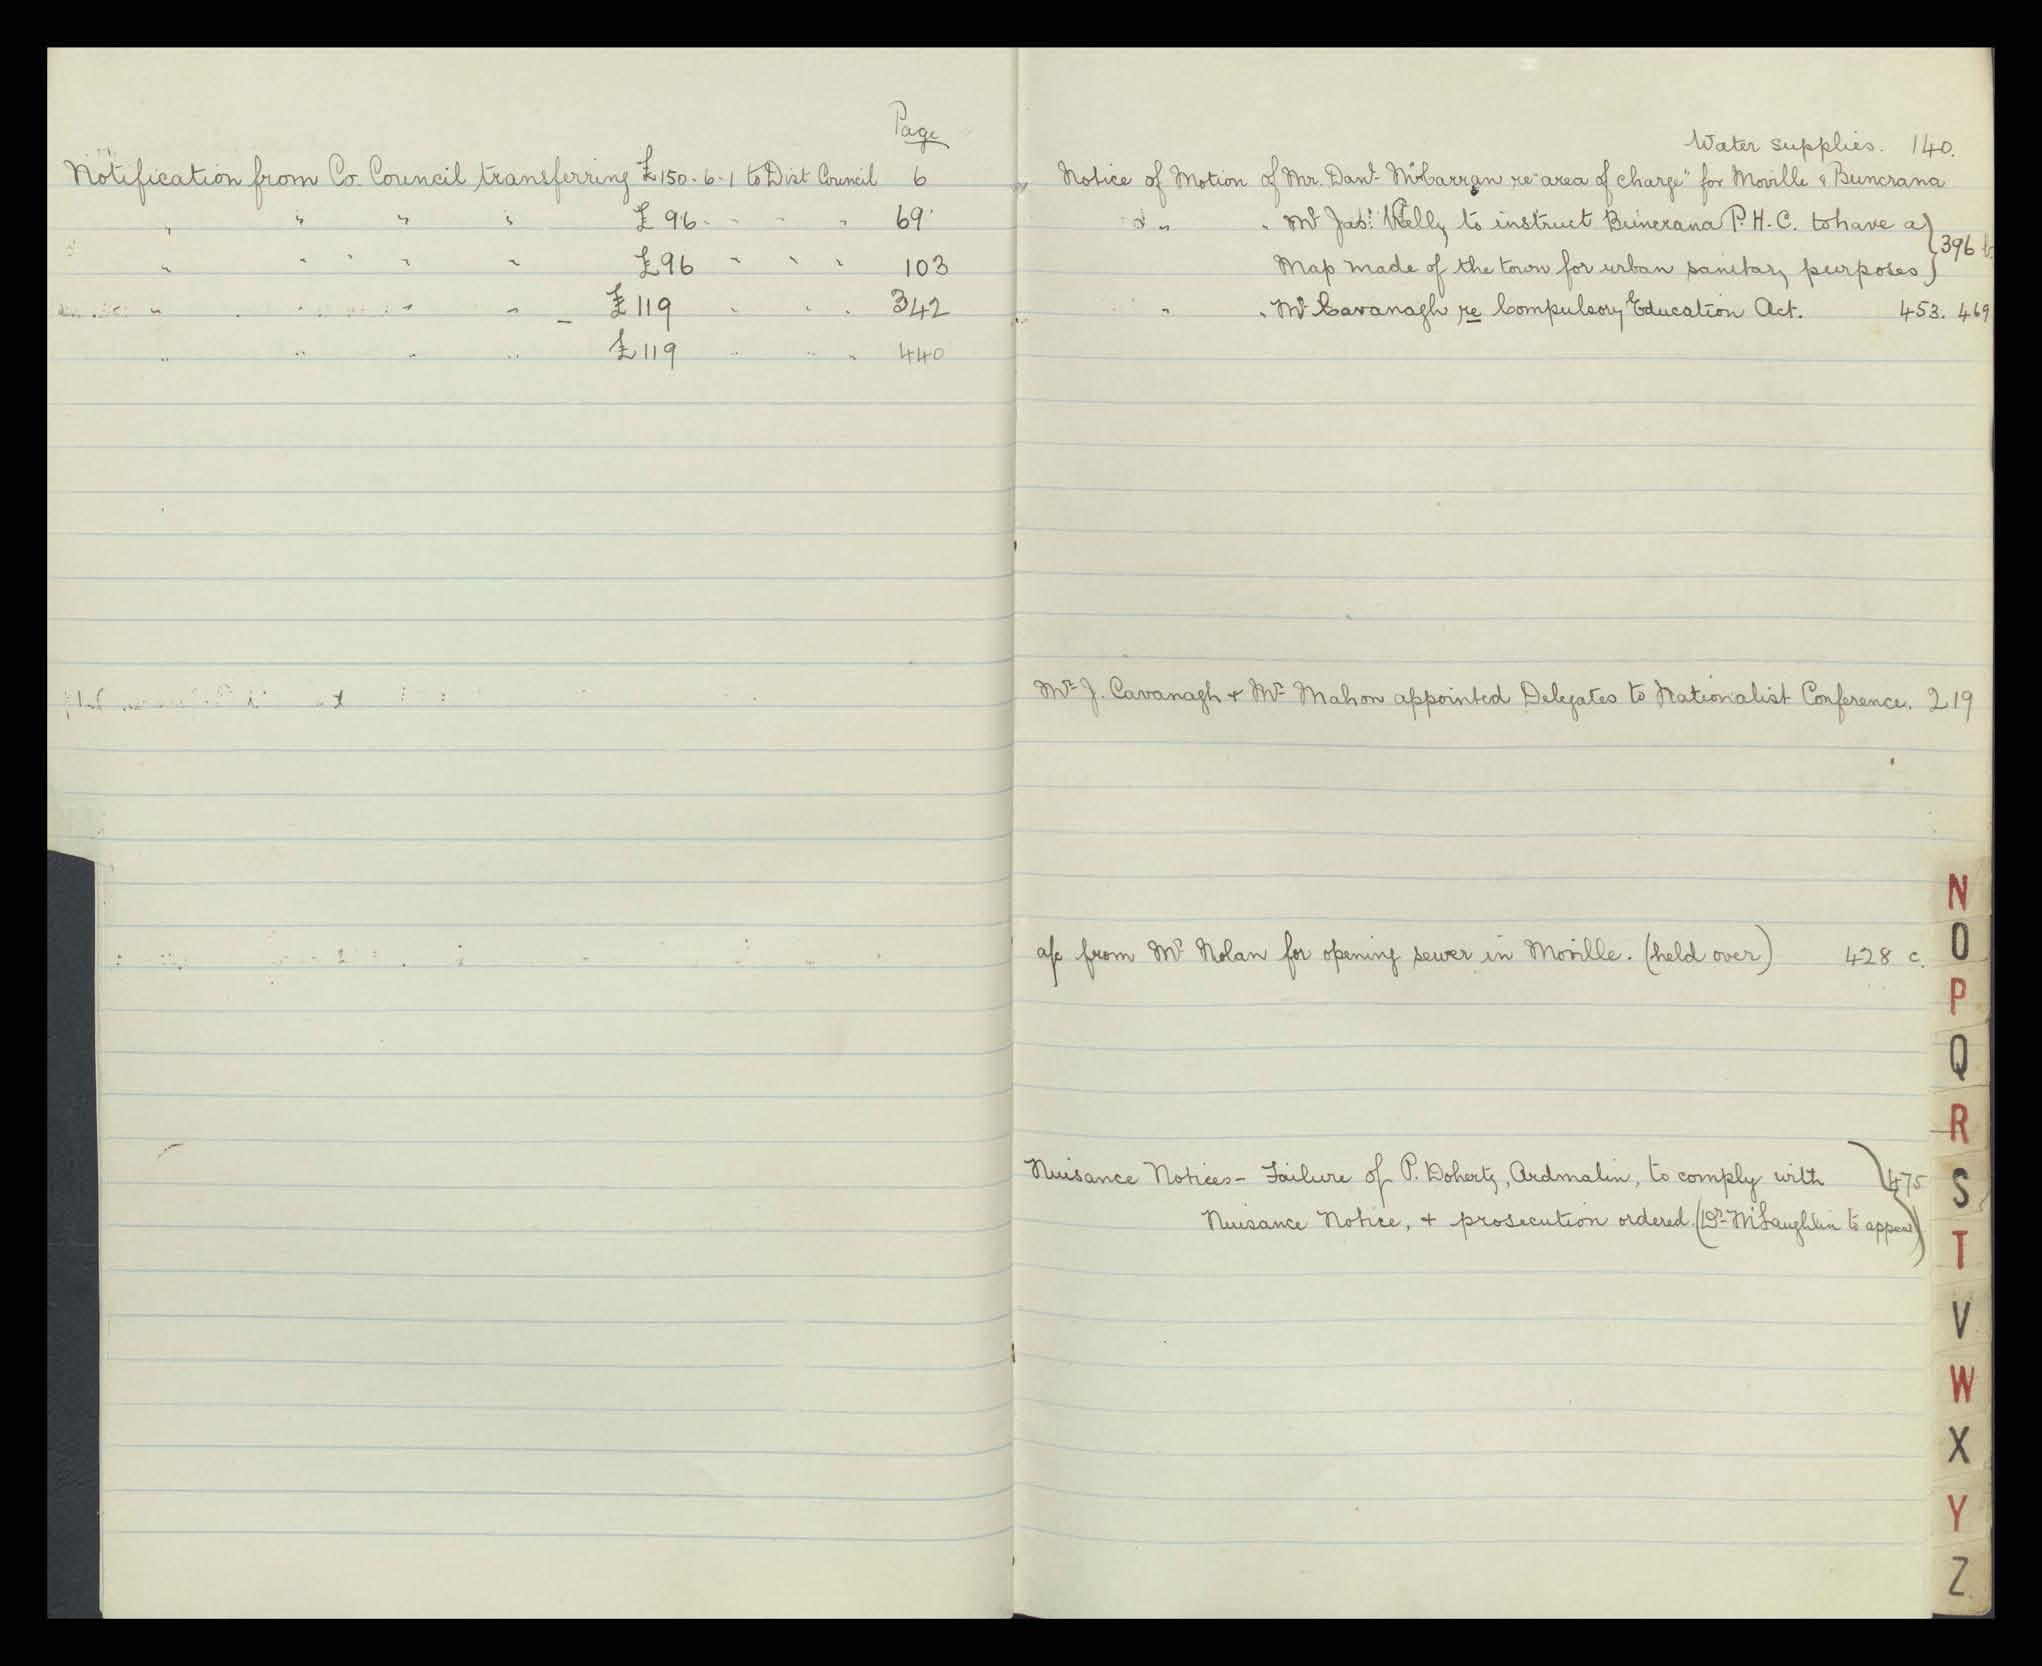 Page
Notification from Co. Council transferring £150-6-1 to Dist Council 6
" " " " £96 - " " " 69
" " " " " £96 " " " 103
" " " " £119 " " " 342
" " " " £119 " " " 440
Water supplies. 140.
Notice of Motion of Mr. Danl. McCarran re "area of charge" for Moville & Buncrana
" " Mr Jas. Kelly to instruct Buncrana P.H.C. to have a
Map made of the town for urban sanitary purposes } 396 b
" " Mr Cavanagh re Compulsory Education Act. 453. 469
Mr J. Cavanagh & Mr Mahon appointed Delegates to Nationalist Conference. 219
a/c from Mr Nolan for opening sewer in Moville. (held over) 428 c.
Nuisance Notices - Failure of P. Doherty, Ardmalin, to comply with
Nuisance Notice, & prosecution ordered. (Dr McLaughlin to appear) } 475
N
O
P
Q
R
S
T
V
W
X
Y
Z